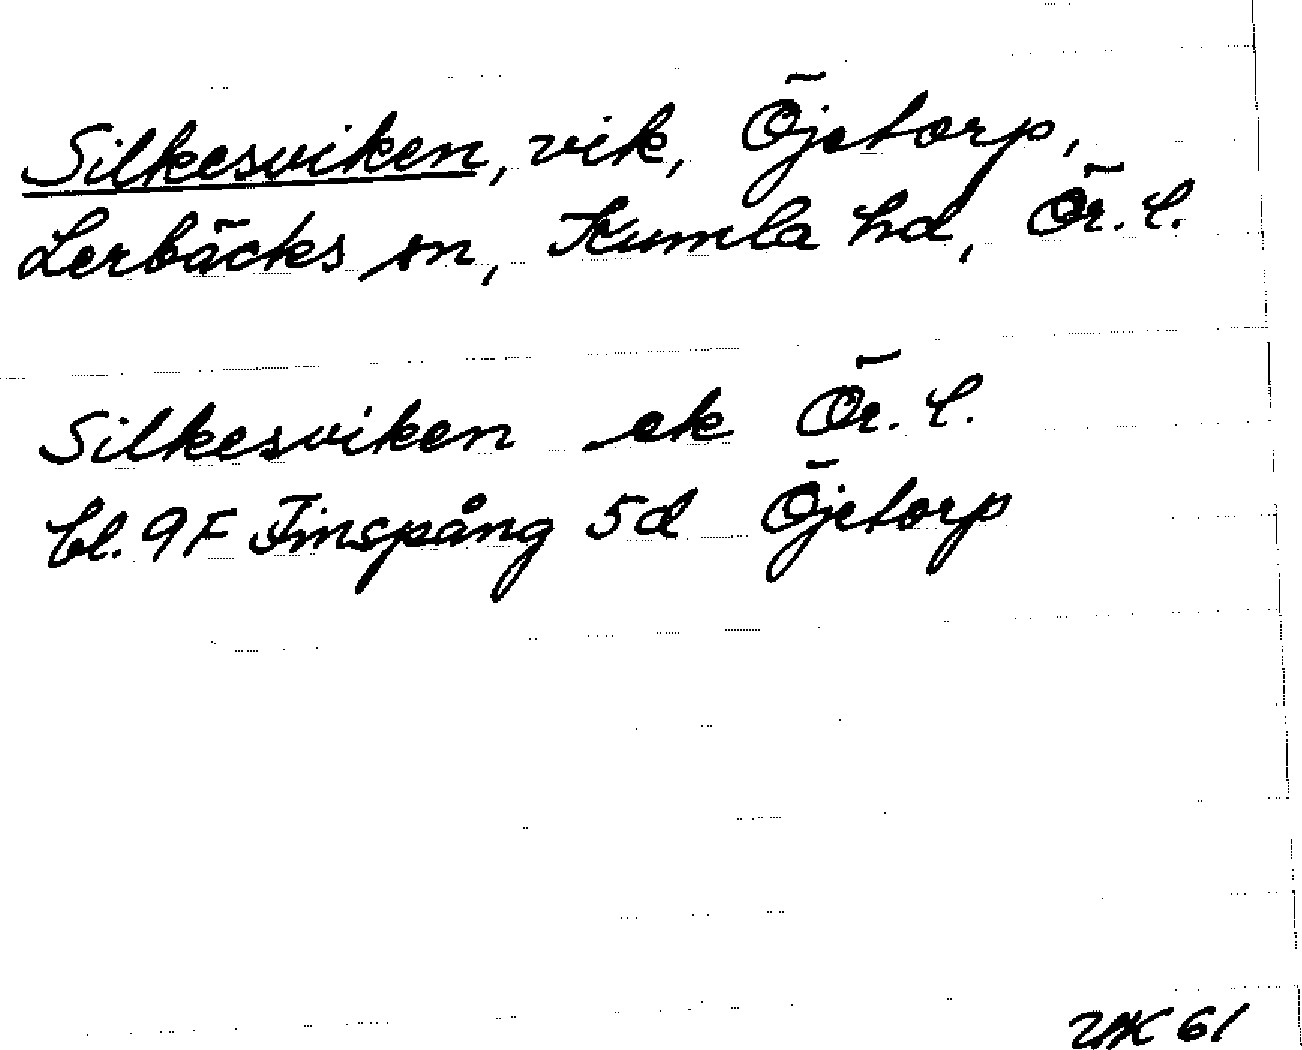 Silkesviken, vik, Öjetorp,
Lerbäcks sn, Kumla hd, Ör. l.
Silkesviken ek Ör. l.
bl. 9F Finspång 5d Öjetorp
61